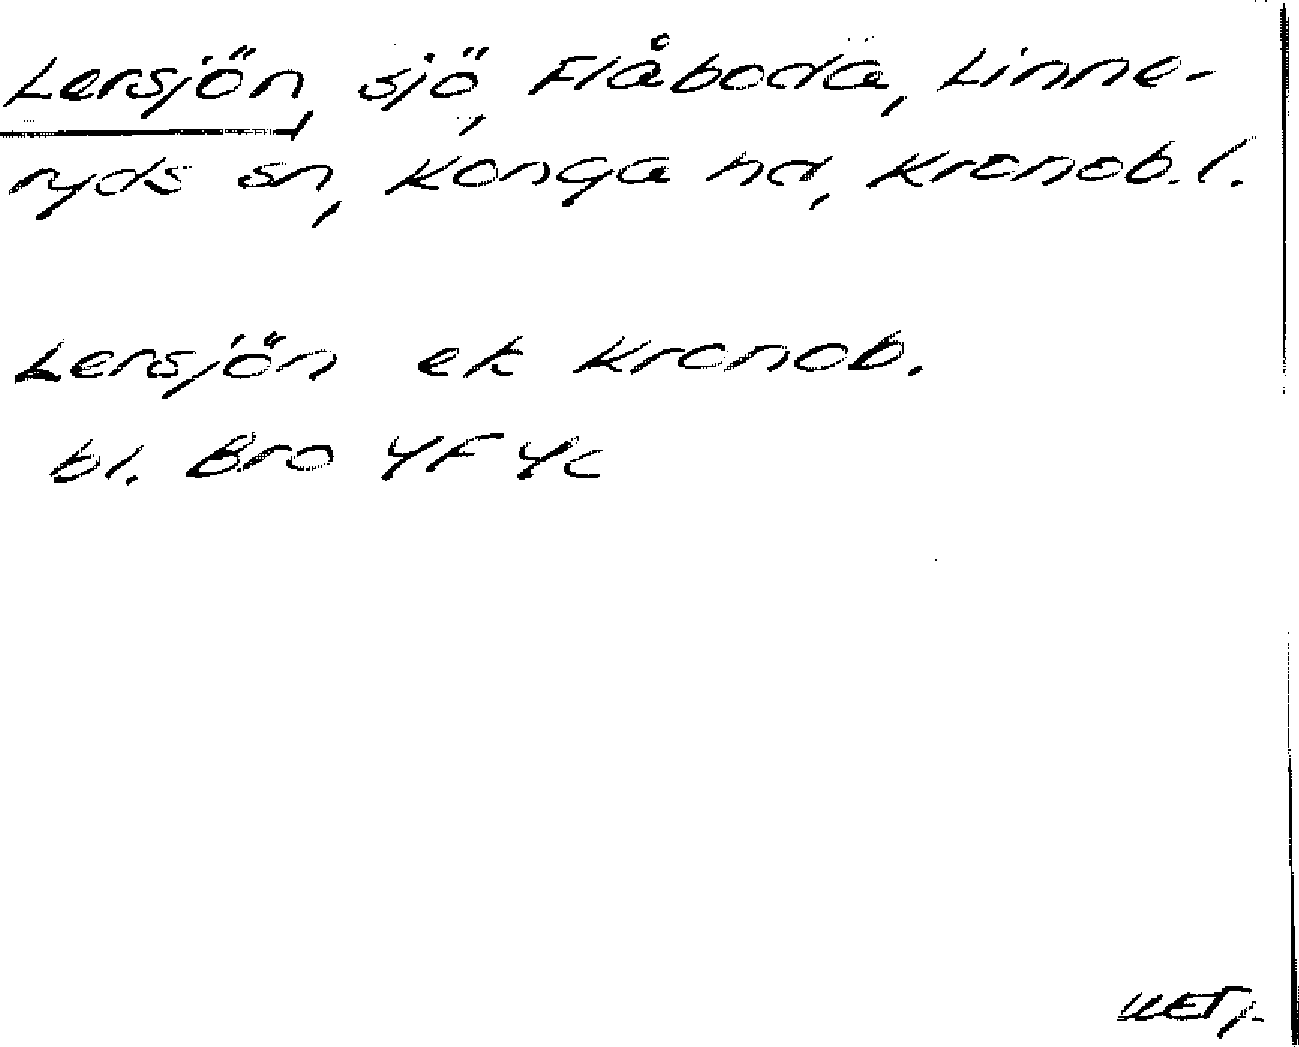 Lersjön, sjö, Flåboda, Linne-
ryds sn, Konga hd, Kronob. l.
Lersjön ek Kronob.
bl. Bro 4F 4c